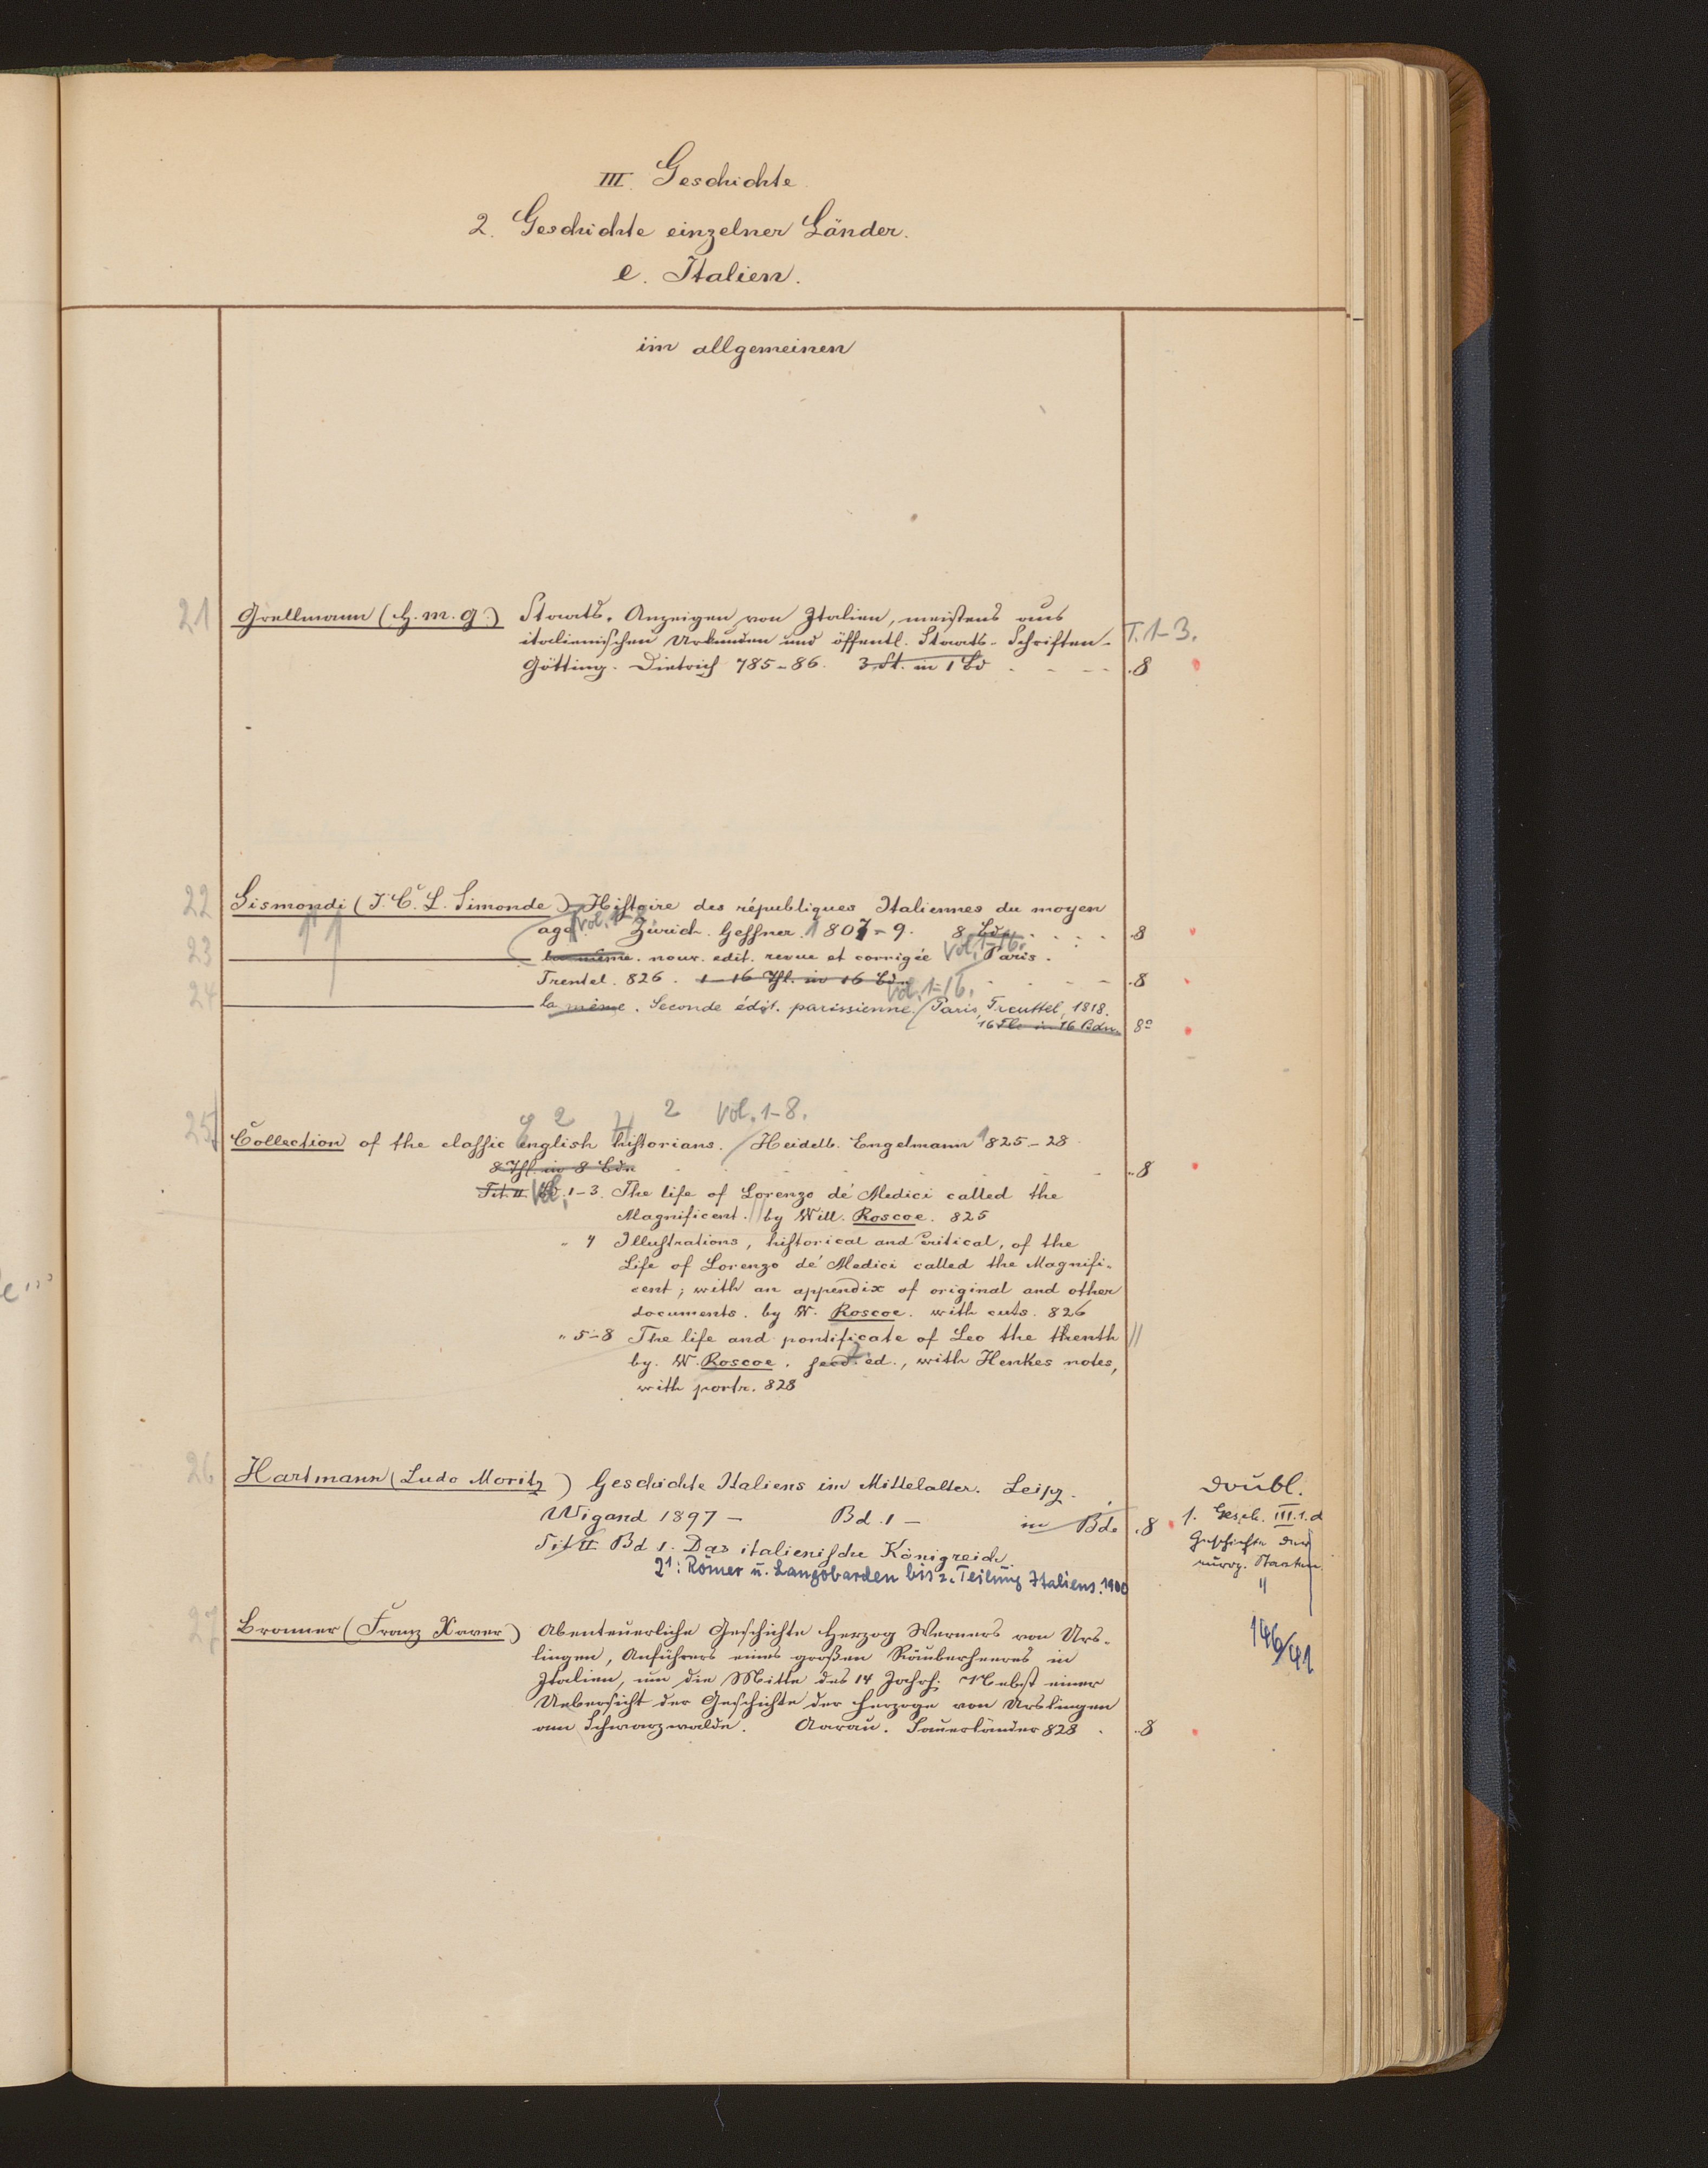 III. Geschichte
2. Geschichte einzelner Länder.
e. Italien.
im allgemeinen
21 Grellmann (H. M. G.) Staats-Anzeigen von Italien, meistens aus
italienischen Urkunden und öffentl. Staats-Schriften- T. 1-3.
Götting. Dietrich 785-86. 3 St. in 1 Bd . - - - .8
22 Sismondi (J. C. L. Simonde) Histoire des républiques Italiennes du moyen
age Vol. 1-8 Zürich. Gessner. 1807-9. 8 Bde. . . . .8
23 la même. nouv. edit. revue et corrigée Vol. 1-16. Paris.
Trentel. 826. 1-16 Thl. in 16 Bdn . - - - .8
24 la même. Seconde édit. parisienne. Vol. 1-16. Paris, Treuttel, 1818.
16 Tle in 16 Bdn. 8°
2 2 Vol. 1-8.
25 Collection of the classic english historians. Heidelb. Engelmann 1825-28.
8 Thl. in 8 Bdn . . . - .8
Tit. II. Vol. 1-3. The life of Lorenzo de' Medici called the
Magnificent. by Will. Roscoe. 825
" 4 Illustrations, historical and critical, of the
Life of Lorenzo de' Medici called the Magnifi-
cent; with an appendix of original and other
documents. by W. Roscoe. with cuts. 826
" 5-8 The life and pontificate of Leo the thenth
by. W. Roscoe. secd. ed., with Henkes notes,
with portr. 828
26 Hartmann (Ludo Moritz) Geschichte Italiens im Mittelalter. Leipz. Doubl.
Wigand 1897 - Bd. 1 - in Bde .8 1. Gesch. III.1.d
Tit II Bd 1. Das italienische Königreich. Geschichte der
europ. Staaten.
2¹: Römer u. Langobarden bis z. Teilung Italiens. 1900 "
27 Bronner (Franz Xaver) Abenteuerliche Geschichte Herzog Werners von Urs- 146/41
lingen, Anführers eines großen Räuberheeres in
Italien, um die Mitte des 14 Jahrh. Nebst einer
Uebersicht der Geschichte der Herzoge von Urslingen
am Schwarzwalde. Aarau. Sauerländer 828 . .8